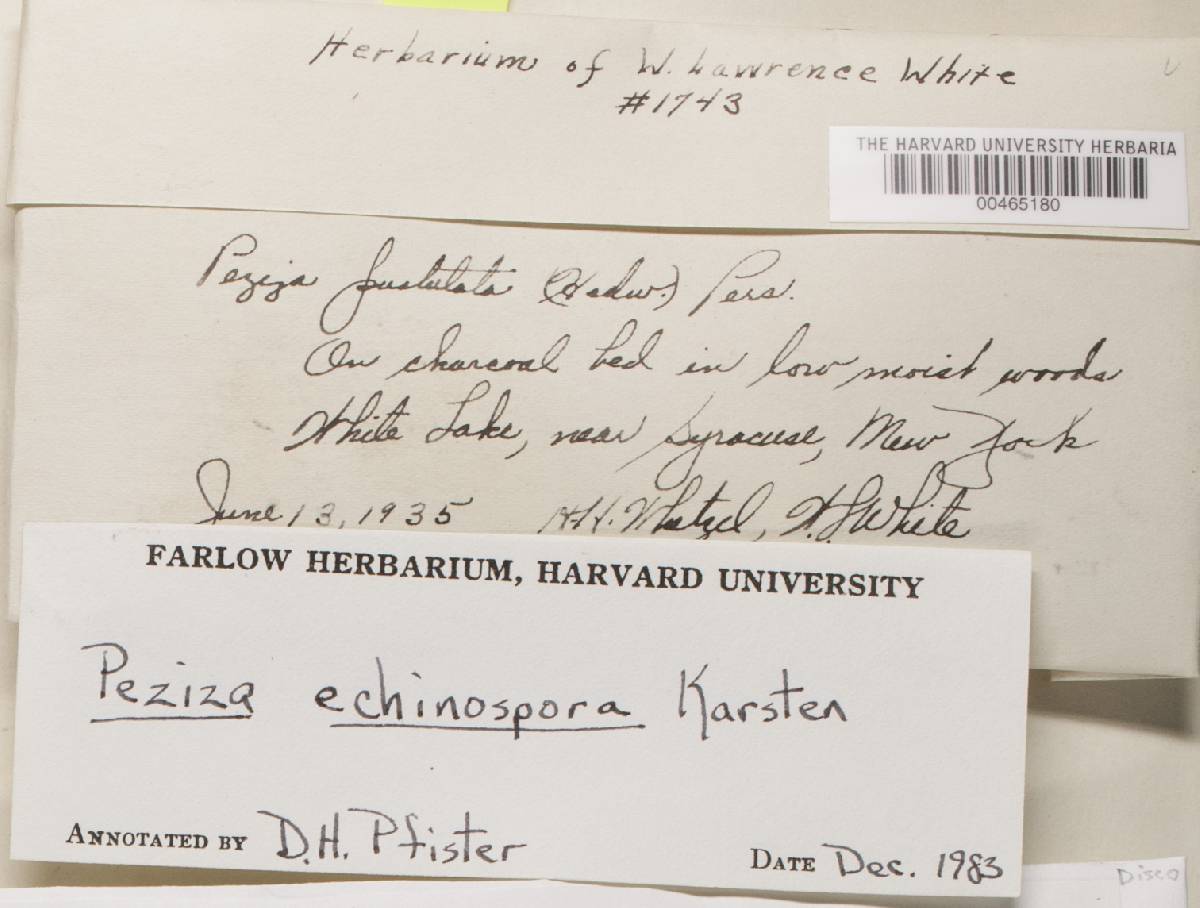 Herbarium of W. Lawrence White
#1743
THE HARVARD UNIVERSITY HERBARIA
00465180
Peziza pustulata (Hedw.) Pers.
On charcoal bed in low moist woods
White Lake, near Syracuse, New York
June 13, 1935 H.H. Whetzel, W.L. White
FARLOW HERBARIUM, HARVARD UNIVERSITY
Peziza echinospora Karsten
ANNOTATED BY D.H. Pfister
DATE Dec. 1983
Disco